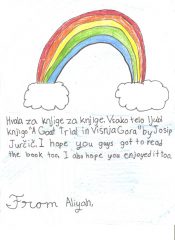 Hvala za knjige za knjige. Vsako telo ljubi
knjigo "A Goat Trial in Višnja Gora" by Josip
Jurčič. I hope you guys got to read
the book too. I also hope you enjoyed it too.
From Aliyah.